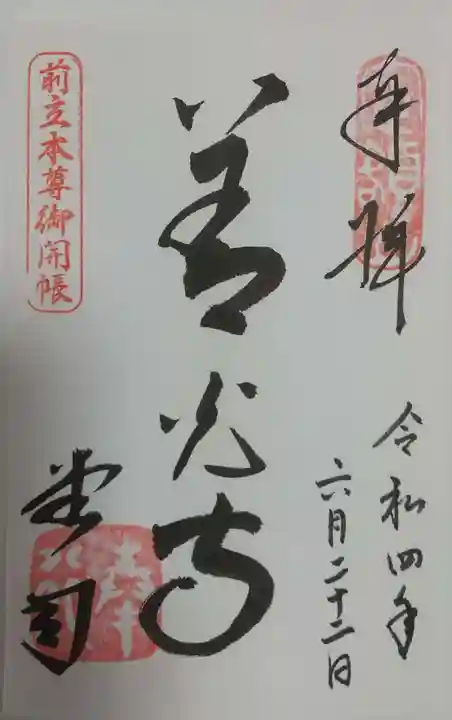 奉拝
令和四年
六月二十二日
善光寺
堂司
前立本尊御開帳